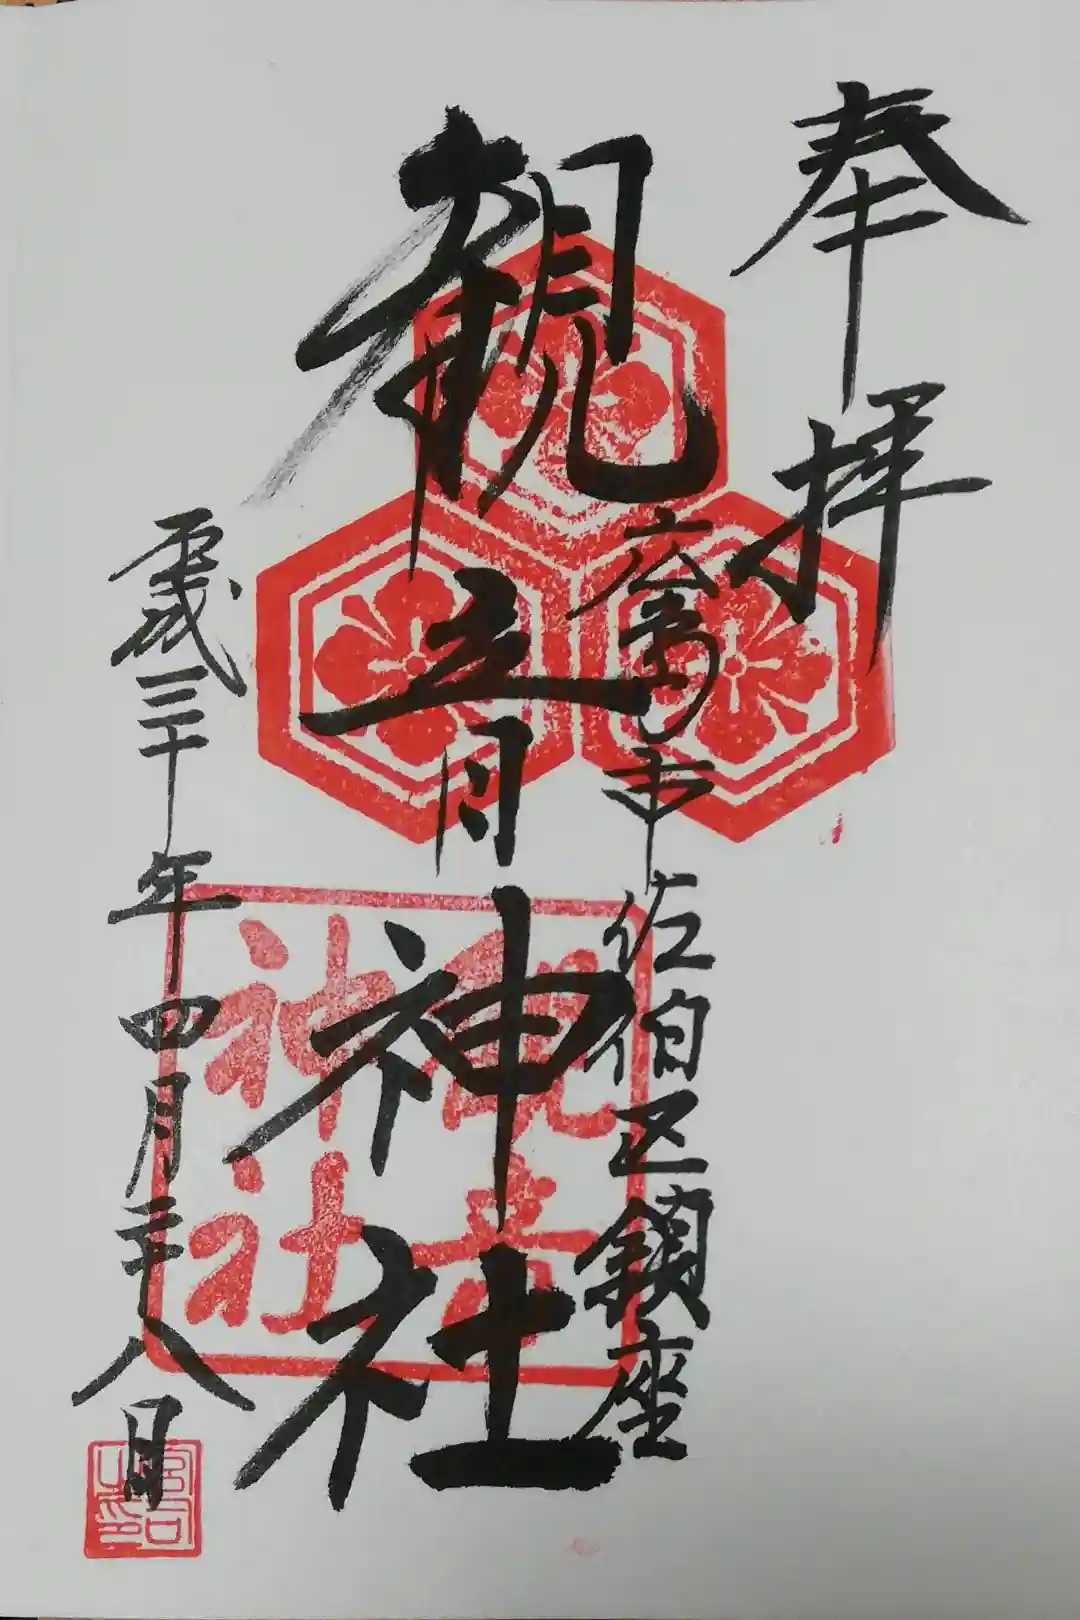 奉拝
広島市佐伯区鎮座
観音神社
平成三十年四月二十八日
観音
神社
宮司
之印